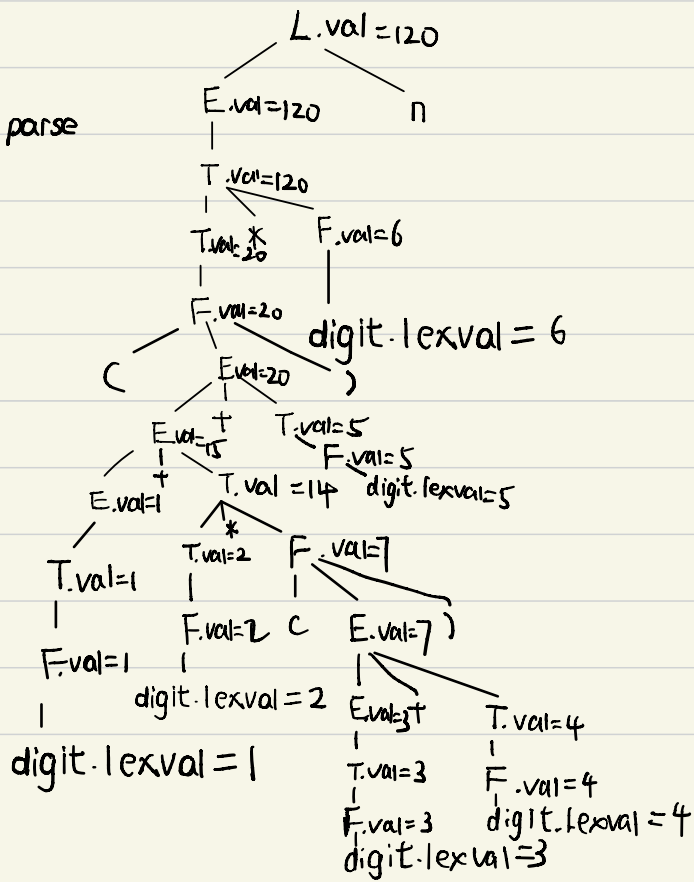 L.val=120
E.val=120 n
parse
T.val=120
T.val=20 * F.val=6
F.val=20
digit.lexval=6
( E.val=20 )
E.val=15 + T.val=5
F.val=5
E.val=1 + T.val=14 digit.lexval=5
T.val=2 * F.val=7
T.val=1
F.val=2 ( E.val=7 )
F.val=1
digit.lexval=2 E.val=3 + T.val=4
digit.lexval=1 T.val=3 F.val=4
F.val=3 digit.lexval=4
digit.lexval=3